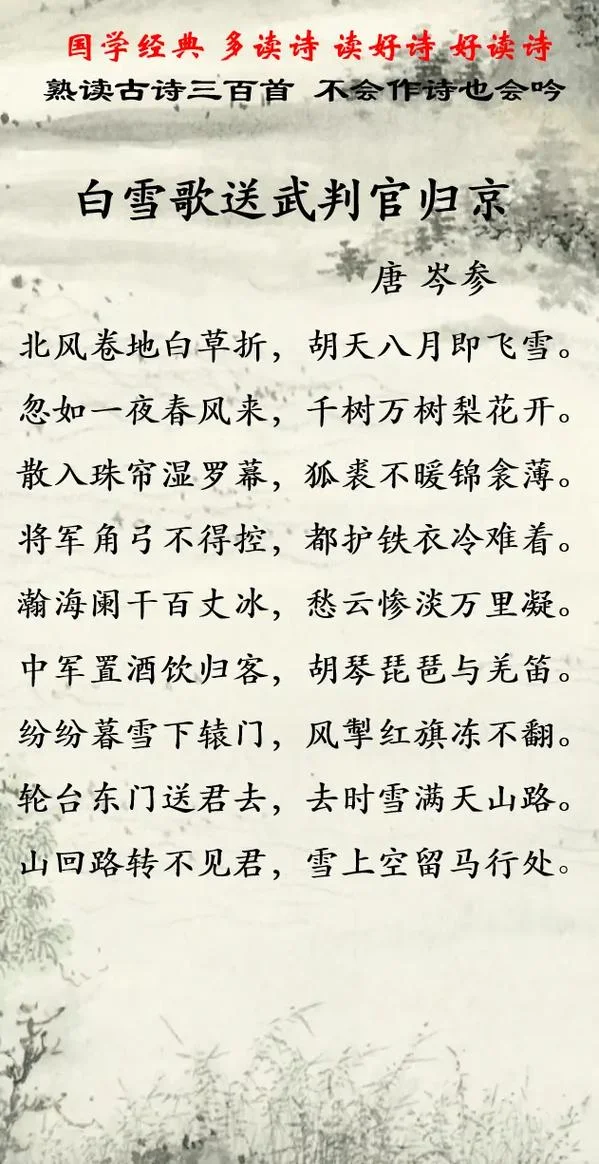 国学经典 多读诗 读好诗 好读诗
熟读古诗三百首 不会作诗也会吟
白雪歌送武判官归京
唐 岑参
北风卷地白草折，胡天八月即飞雪。
忽如一夜春风来，千树万树梨花开。
散入珠帘湿罗幕，狐裘不暖锦衾薄。
将军角弓不得控，都护铁衣冷难着。
瀚海阑干百丈冰，愁云惨淡万里凝。
中军置酒饮归客，胡琴琵琶与羌笛。
纷纷暮雪下辕门，风掣红旗冻不翻。
轮台东门送君去，去时雪满天山路。
山回路转不见君，雪上空留马行处。